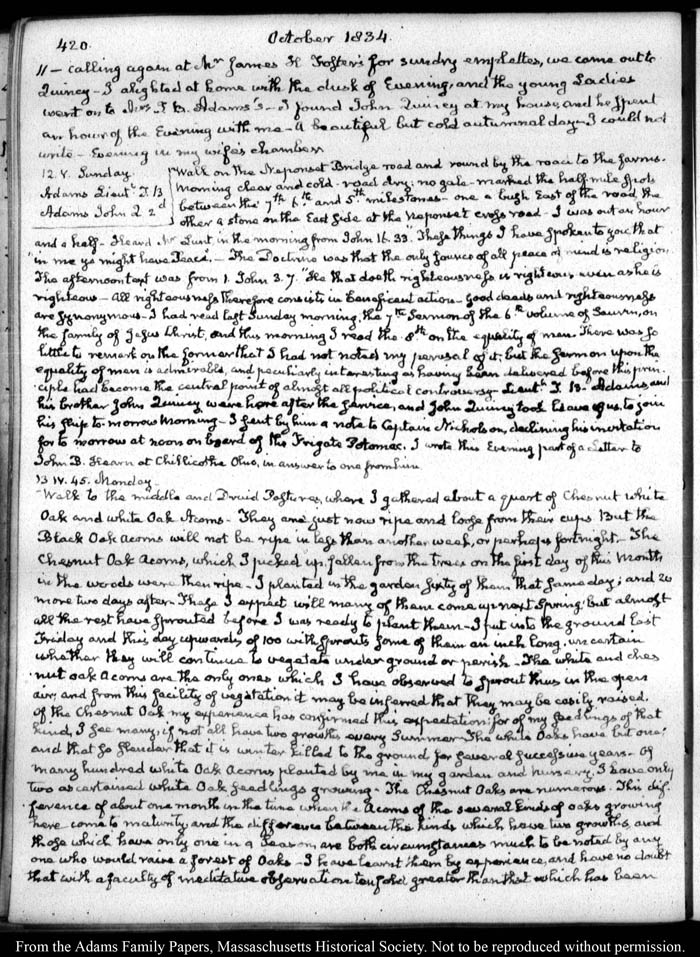 420. October 1834.
11 — calling again at Mr James H Foster's for sundry emplettes, we came out to
Quincy — I alighted at home with the dusk of Evening, and the young Ladies
went on to Mrs T. B. Adams's — I found John Quincy at my house, and he spent
an hour of the Evening with me — A beautiful but cold autumnal day — I could not
write — Evening in my wife's chamber.
12. V. Sunday.
Adams Lieutt T. B
Adams John Q 2d
Walk on the Neponset Bridge road and round by the road to the farms.
Morning clear and cold — road dry; no gale — marked the half-mile spots
between the 7th 6th and 5th milestones — one a bush East of the road the
other a stone on the East side at the Neponset cross road — I was out an hour
and a half — Heard Mr Lunt in the morning from John 16. 33. "These things I have spoken to you, that
in me ye might have Peace." — The Doctrine was that the only source of all peace of mind is religion.
The afternoon text was from 1. John 3. 7. "He that doeth righteousness is righteous even as he is
righteous — All righteousness therefore consists in beneficent action — good deeds and righteousness
are synonymous — I had read last Sunday morning, the 7th Sermon of the 6th volume of Saurin, on
the family of Jesus Christ, and this morning I read the 8th on the equality of men. There was so
little to remark on the former that I had not noted my perusal of it; but the Sermon upon the
equality of men is admirable, and peculiarly interesting as having been delivered before this prin-
ciple had become the central point of almost all political controversy — Lieutt T. B. Adams and
his brother John Quincy were here after the service, and John Quincy took leave of us, to join
his ship to-morrow morning — I sent by him a note to Captain Nicholson, declining his invitation
for to morrow at noon on board of the Frigate Potomac. I wrote this Evening part of a Letter to
John B. Hearn at Chillicothe Ohio, in answer to one from him
13 IV. 45. Monday —
Walk to the middle and Druid Pastures, where I gathered about a quart of Chesnut white
Oak and white Oak Acorns — They are just now ripe and loose from their cups But the
Black Oak Acorns will not be ripe in less than another week, or perhaps fortnight. — The
Chesnut Oak Acorns, which I picked up, fallen from the trees on the first day of this Month
in the woods were then ripe — I planted in the garden sixty of them that same day; and 20
more two days after — These I expect will many of them come up next Spring; but almost
all the rest have sprouted before I was ready to plant them — I put into the ground last
Friday and this day upwards of 100 with sprouts some of them an inch long, uncertain
whether they will continue to vegetate under ground or perish — The white and ches
nut oak Acorns are the only ones which I have observed to sprout thus in the open
air; and from this facility of vegetation it may be inferred that they may be easily raised.
Of the Chesnut Oak my experience has confirmed this expectation: for of my seedlings of that
kind, I see many, if not all have two growths every Summer — The white Oaks have but one;
and that so slender that it is winter killed to the ground for several successive years — Of
many hundred white Oak Acorns planted by me in my garden and nursery, I have only
two ascertained white Oak seedlings growing — The Chesnut Oaks are numerous. This dif-
ference of about one month in the time when the Acorns of the several kinds of oaks growing
here come to maturity and the difference between the kinds which have two growths, and
those which have only one in a Season are both circumstances much to be noted by any
one who would raise a forest of Oaks — I have learnt them by experience, and have no doubt
that with a faculty of meditative observation tenfold greater than that which has been
From the Adams Family Papers, Massachusetts Historical Society. Not to be reproduced without permission.